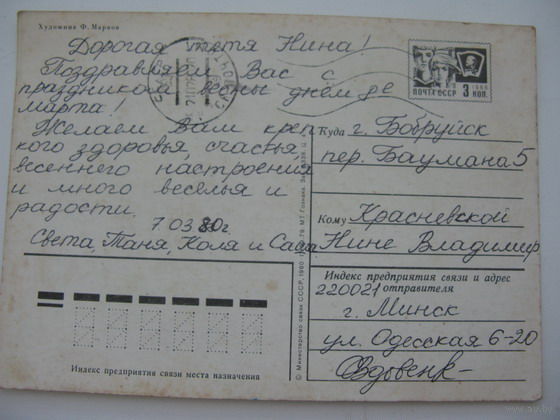 Художник Ф. Марков
Дорогая тетя Нина!
Поздравляем Вас с
праздником весны днём 8е
марта!
Желаем Вам креп
кого здоровья, счастья,
весеннего настроения
и много веселья и
радости.
7 03 80г
Света, Таня, Коля и Саша
ПОЧТА СССР 3 КОП.
1966
Куда г. Бобруйск
пер. Баумана 5
Кому Красневской
Нине Владимир
Индекс предприятия связи и адрес
отправителя
220021
г. Минск
ул. Одесская 6-20
Вдовенк
Индекс предприятия связи места назначения
© Министерство связи СССР, 1980